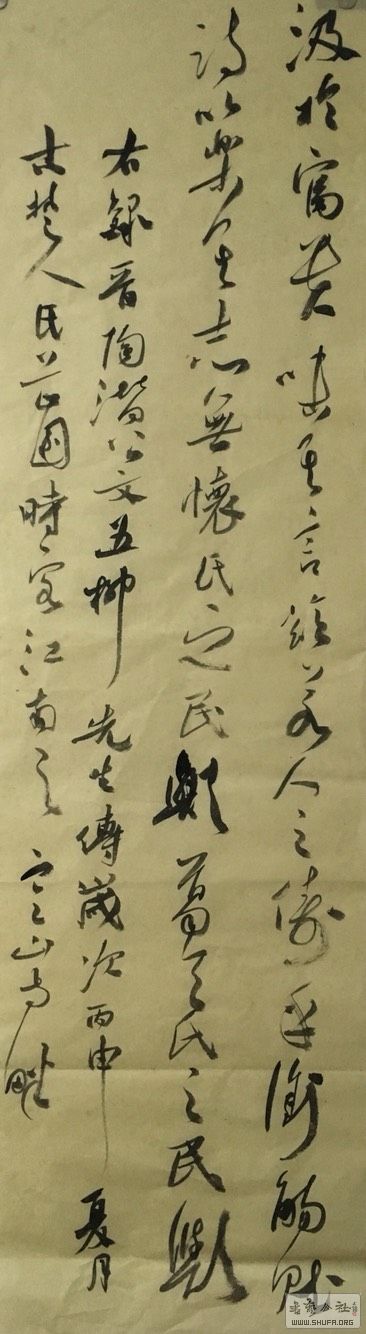 汲於富貴味其言茲若人之儔乎銜觴賦
詩以樂其志無懷氏之民歟葛天氏之民歟
右錄晉陶潛公文五柳先生傳歲次丙申夏月
古楚人氏 國時客江南之 山寺畔
WWW.SHUFA.ORG